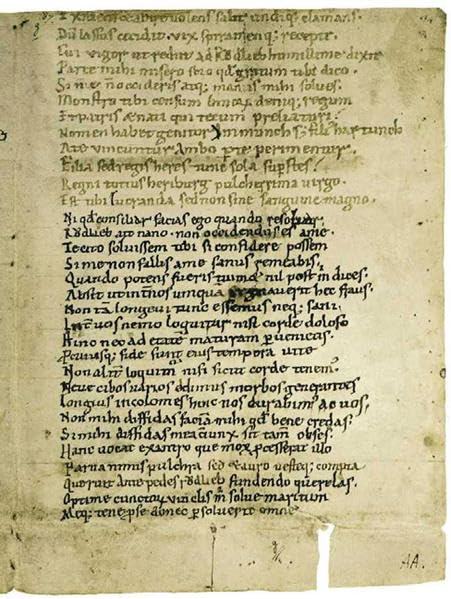 volens salit undiq; clamans.
Dū lassus cecidit, vix spiramenq; recepit.
Cui vigor ut rediit ad Rŏdlieb humillime dixit
Parce mihi misero scio qđ gratum tibi dico.
Si me n̄ occideris atq; manus mihi solves.
Monstro tibi censum binoꝝ deniq; regum
Et patris & nati qui tecum preliaturi.
Nomen hab& genitor Immunch sꝫ fili' hartunch
A te vincuntur Ambo p̄ te perimentur.
Filia sed regis heres tunc sola supstes
Regni totius heriburg pulcherrima virgo.
Est tibi lucranda sed non sine sanguine magno.
Ni qđ consiliar facias ego quando resolvar.
Rŏdlieb ait nano. non occidendus es a me.
Te cito solvissem tibi si confidere possem
Si me non fallis a me sanus remeabis.
Quando potens fueris tuimet nil post m̄ dices.
Absit ut int̄ nos unqua regnaverit hec fraus.
Non tā longevi tunc essemus neq; sani.
Int̄ vos nemo loquitur nisi corde doloso
Hinc nec ad etatē maturam pvenietis.
P cuiusq; fide sunt eius tempora vite
Non alit̄ loquim̄ nisi sicut corde tenem̄.
Neve cibos varios edimus morbos generantes
Longius incolomes hinc nos durabim̄ ac vos.
Non mihi diffidas faciā mihi qđ bene credas.
Si mihi diffidas mea ciunx sit tam̄ obses.
Hanc vocat ex antro que mox pcessit ab illo
Parva nimis pulchra sed & auro vesteq; compta
Que ruit ante pedes rŏdlieb fundendo querelas.
Optime cunctoꝝ vinclis m̄ solve maritum
Meq; tene p se donec psolverit omne
AA.